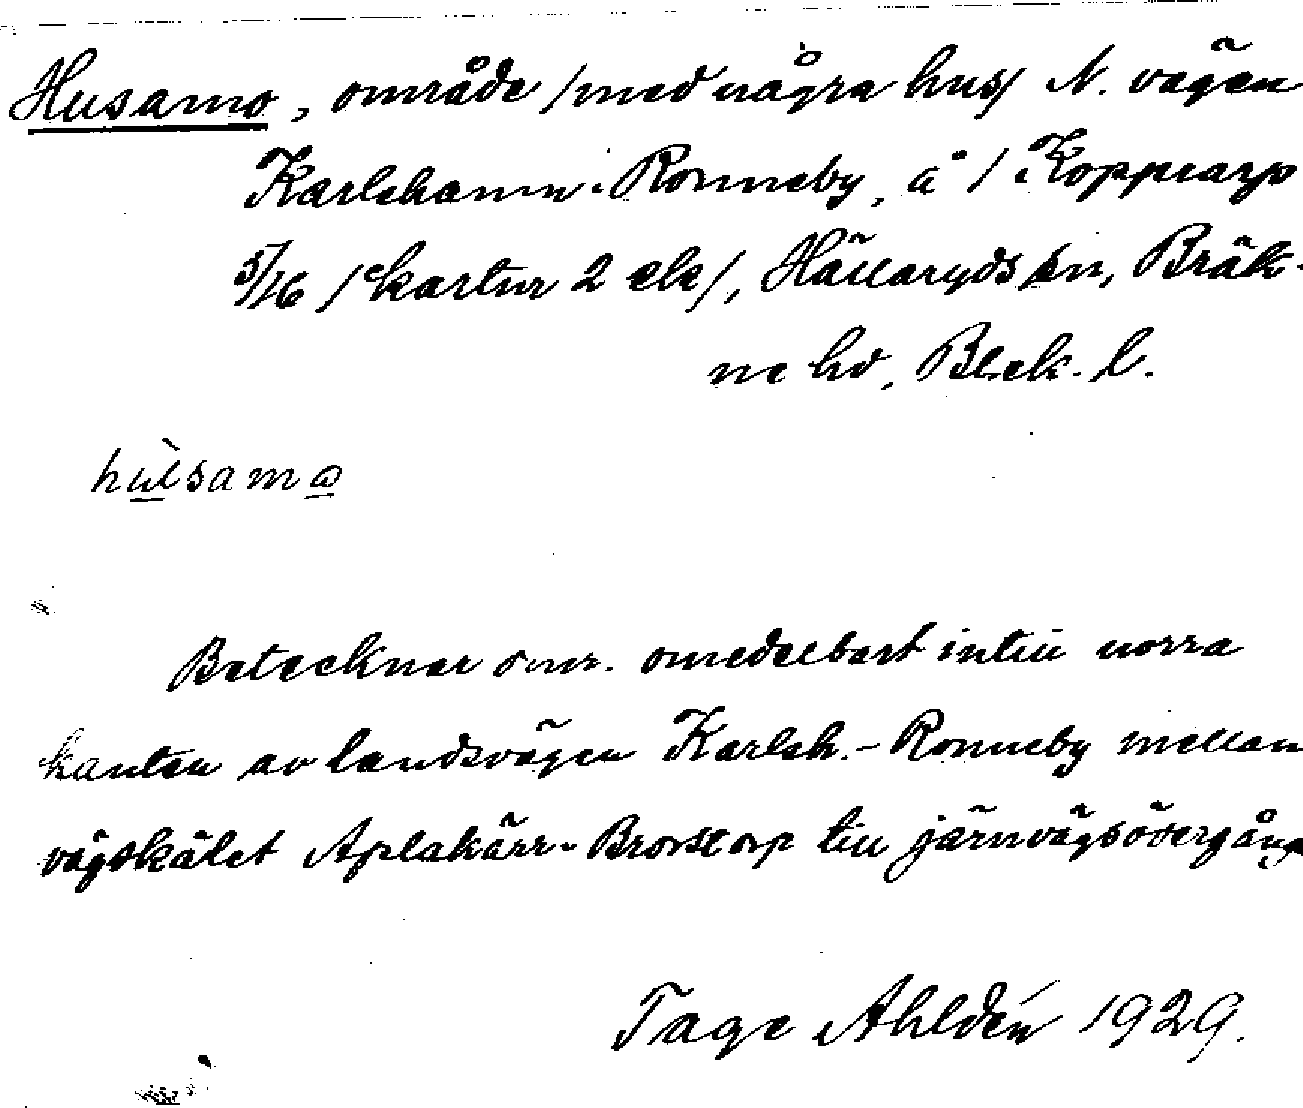 Husamo, område /med några hus/ N. vägen
Karlshamn-Ronneby, å 1 Kopparp
5/16 /ekartur 2 elc/, Hällaryds sn, Bräk-
ne hd,Blek. l.
hu̠̇samo̠
Betecknar omr. omedelbart intill norra
kanten av landsvägen Karlsh.-Ronneby mellan
vägskälet Aplakärr-Brorstorp till järnvägsövergång
Tage Ahldén 1929.